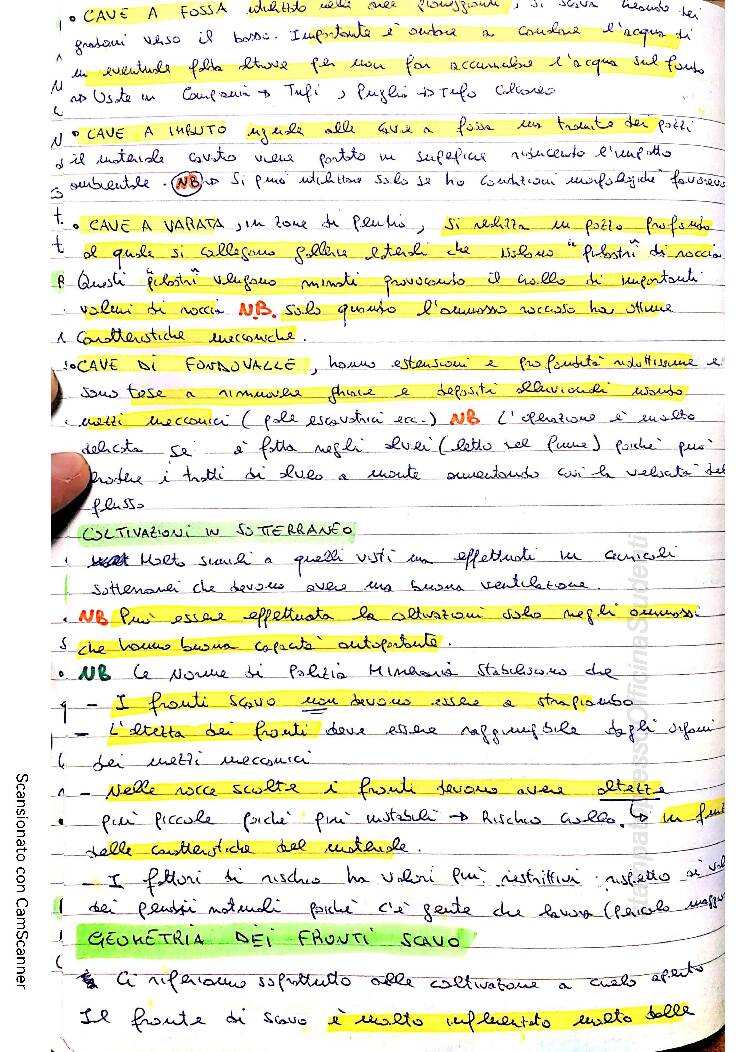 • CAVE A FOSSA utilizzate nelle aree pianeggianti, si scava creando dei
gradoni verso il basso. Importante è andare a condurre l'acqua di
un eventuale falda altrove per non far accumulare l'acqua sul fondo
→ Usate in Campania → Tufi, Puglia → Tufo Calcareo
• CAVE A IMBUTO uguale alle cave a fossa ma tramite dei pozzi
il materiale cavato viene portato in superficie riducendo l'impatto
ambientale. NB → Si può utilizzare solo se ho condizioni morfologiche favorevo
• CAVE A VARATA, in zone di pendio, si realizza un pozzo profondo
al quale si collegano gallerie laterali che isolano "pilastri" di roccia
Questi "pilastri" vengono minati provocando il crollo di importanti
volumi di roccia NB. solo quando l'ammasso roccioso ha ottime
caratteristiche meccaniche.
• CAVE DI FONDOVALLE, hanno estensioni e profondità ridottissime e
sono tese a rimuovere ghiaie e depositi alluvionali usando
mezzi meccanici (pale escavatrici ecc.) NB L'operazione è molto
delicata se è fatta negli alvei (letto del fiume) poiché può
erodere i tratti di alveo a monte aumentando così la velocità del
flusso
COLTIVAZIONI IN SOTTERRANEO
Molto simili a quelli visti ma effettuati in cunicoli
sotterranei che devono avere una buona ventilazione.
NB Può essere effettuata la coltivazioni solo negli ammassi
che hanno buona capacità autoportante.
• NB Le Norme di Polizia Mineraria stabiliscono che
- I fronti scavo non devono essere a strapiombo
- L'altezza dei fronti deve essere raggiungibile dagli organi
dei mezzi meccanici
- Nelle rocce sciolte i fronti devono avere altezze
più piccole poiché più instabili → Rischio crollo. ↳ in fun
delle caratteristiche del materiale.
- I fattori di rischio ha valori più restrittivi rispetto ai val
dei pendii naturali poiché c'è gente che lavora (pericolo maggio
GEOMETRIA DEI FRONTI SCAVO
Ci riferiamo soprattutto alle coltivazione a cielo aperto
Il fronte di scavo è molto influenzato molto dalle
Scansionato con CamScanner